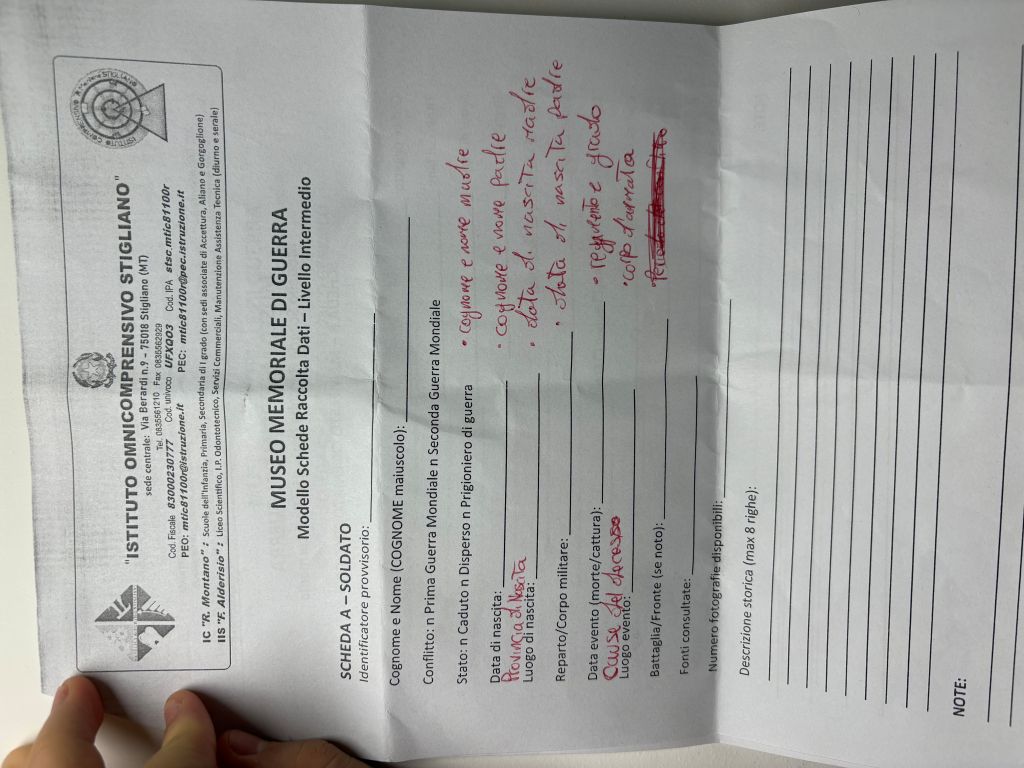 "ISTITUTO OMNICOMPRENSIVO STIGLIANO"
sede centrale: Via Berardi n.9 – 75018 Stigliano (MT)
Tel. 0835561210 Fax 0835562929
Cod. Fiscale 83000230777 Cod. univoco UFXQO3 Cod. IPA stsc.mtic81100r
PEO: mtic81100r@istruzione.it PEC: mtic81100r@pec.istruzione.it
IC "R. Montano" : Scuole dell'Infanzia, Primaria, Secondaria di I grado (con sedi associate di Accettura, Aliano e Gorgoglione)
IIS "F. Alderisio" : Liceo Scientifico, I.P. Odontotecnico, Servizi Commerciali, Manutenzione Assistenza Tecnica (diurno e serale)
MUSEO MEMORIALE DI GUERRA
Modello Schede Raccolta Dati – Livello Intermedio
SCHEDA A – SOLDATO
Identificatore provvisorio:
Cognome e Nome (COGNOME maiuscolo):
Conflitto: n Prima Guerra Mondiale n Seconda Guerra Mondiale
Stato: n Caduto n Disperso n Prigioniero di guerra
• cognome e nome madre
Data di nascita:
• cognome e nome padre
Provincia di Nascita
Luogo di nascita:
• data di nascita madre
• data di nascita padre
Reparto/Corpo militare:
Data evento (morte/cattura):
• reggimento e grado
Cause del decesso
Luogo evento:
• corpo d'armata
Battaglia/Fronte (se noto):
Fonti consultate:
Numero fotografie disponibili:
Descrizione storica (max 8 righe):
NOTE: